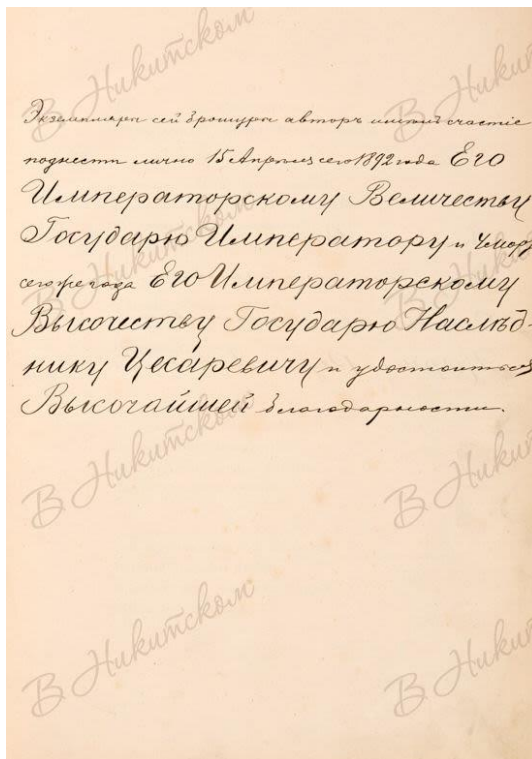 Экземпляръ сей брошюры авторъ имѣлъ счастіе
поднести лично 15 Апрѣля сего 1892 года Его
Императорскому Величеству
Государю Императору и
сего же года Его Императорскому
Высочеству Государю Наслѣд-
нику Цесаревичу и удостоиться
Высочайшей благодарности.
В Никитском
В Никитском
В Никитском
В Никитском